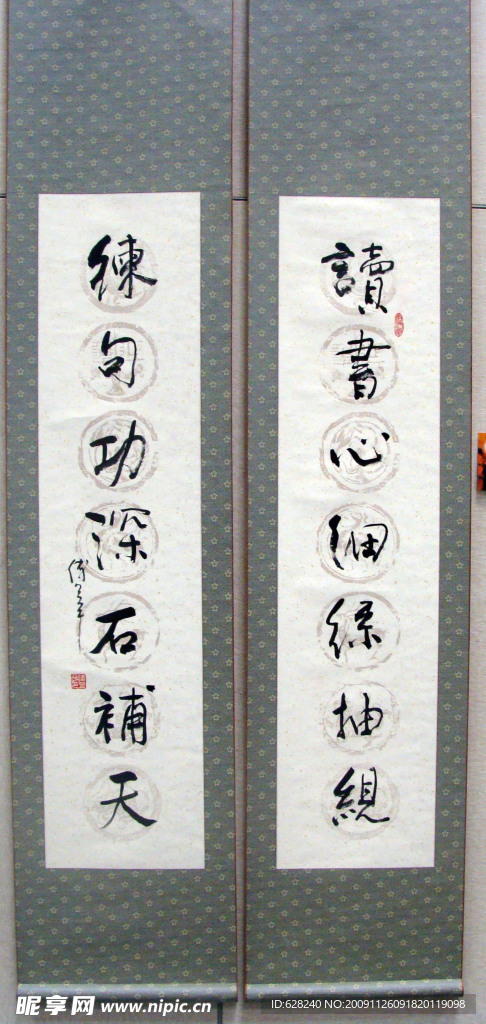 讀書心細絲抽繭
練句功深石補天
昵享网 www.nipic.cn
ID:628240 NO:20091126091820119098